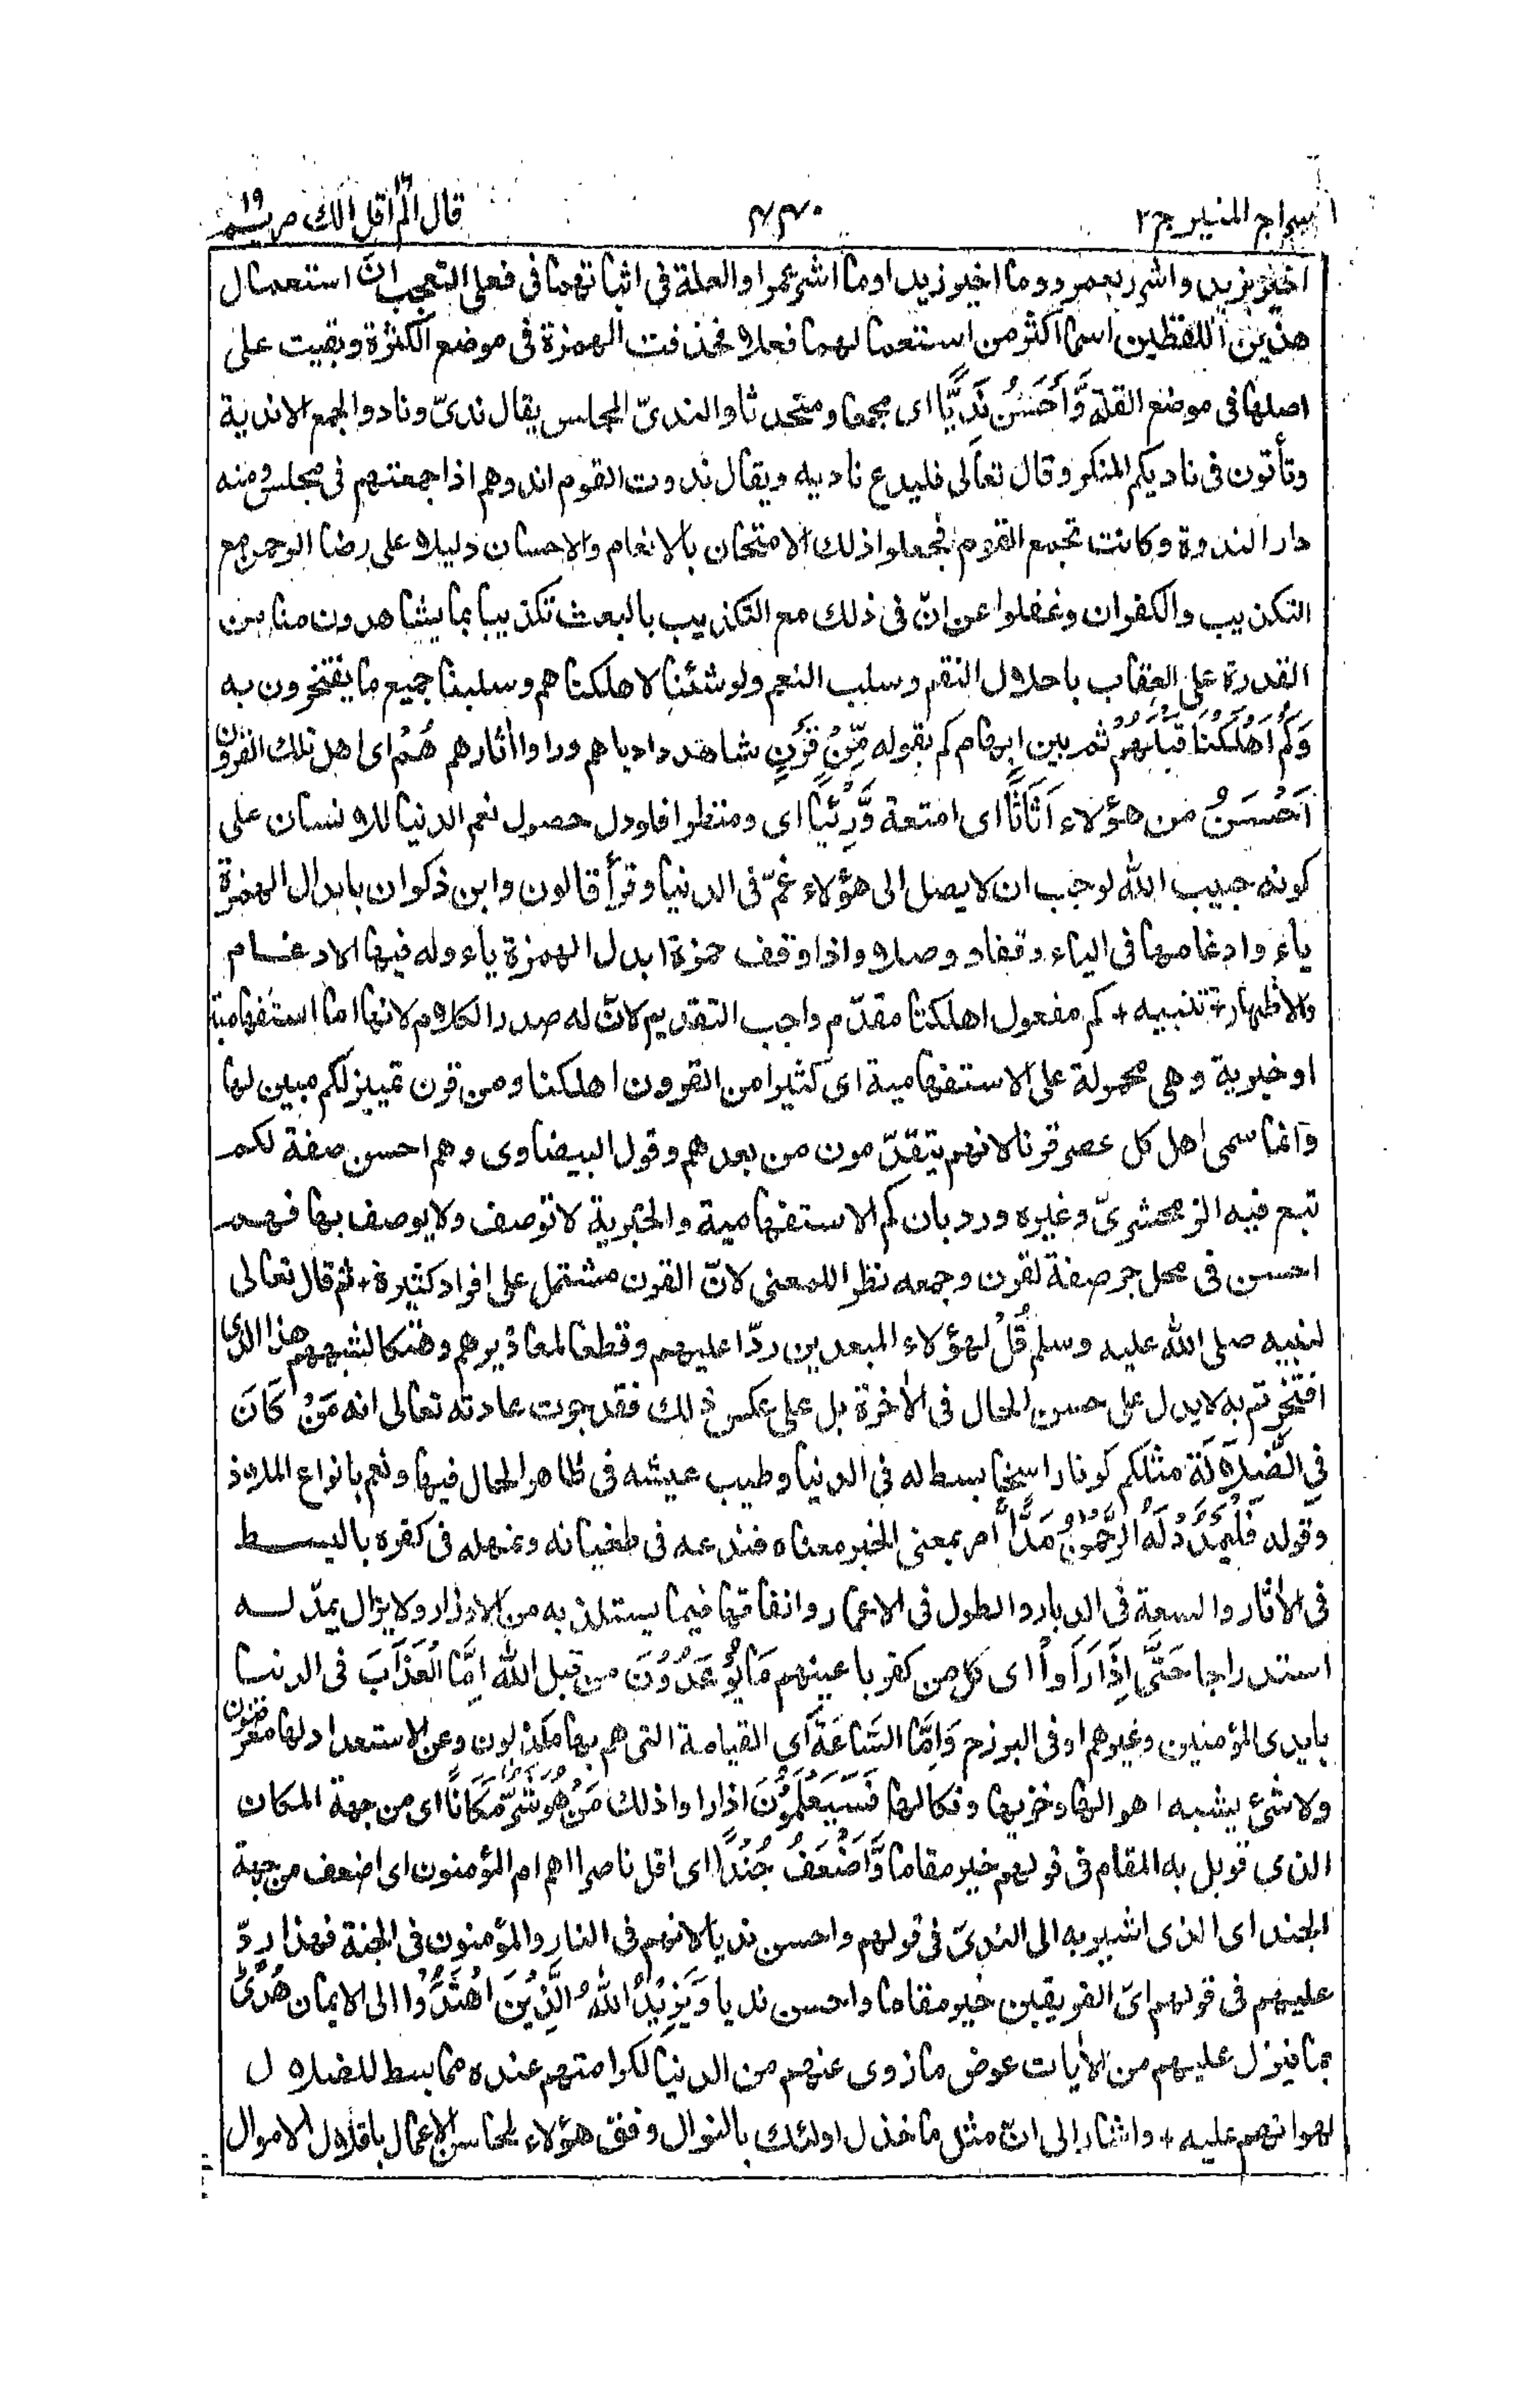 السراج المنير ج٢ ٤٤٠ قال الم اقل لك ١٦ مريم ١٩
اخير بزيد واشرر بعمرو وما اخير زيدا وما اشر عمرا والعلة فى اثباتهما فى فعلى التعجب انّ استعمال
هذين اللفظين اسما اكثر من استعمالهما فعلا فحذفت الهمزة فى موضع الكثرة وبقيت على
اصلها فى موضع القلة وَّاَحْسَنُ نَدِيًّا اى مجمعا ومتحدثا والندىّ المجلس يقال ندىّ وناد والجمع الاندية
وتأتون فى ناديكم المنكر وقال تعالى فليدع ناديه ويقال ندوت القوم اندوهم اذا جمعتهم فى مجلس ومنه
دار الندوة وكانت تجمع القوم فجعلوا ذلك الامتحان بالانعام والاحسان دليلا على رضا الرحمن مع
التكذيب والكفران وغفلوا عن انّ فى ذلك مع التكذيب بالبعث تكذيبا بما يشاهدون منا من
القدرة على العقاب باحلال النقم وسلب النعم ولو شئنا لاهلكناهم وسلبنا جميع ما يفتخرون به
وَكَمْ اَهْلَكْنَا قَبْلَهُمْ ثم بين ابهام كم بقوله مِّنْ قَرْنٍ شاهدوا ديارهم وراوا اثارهم هُمْ اى اهل تلك القرون
اَحْسَنُ من هؤلاء اَثَاثًا اى امتعة وَّرِئْيًا اى ومنظرا فلو دل حصول نعم الدنيا للانسان على
كونه حبيب الله لوجب ان لا يصل الى هؤلاء غمّ فى الدنيا وقرأ قالون وابن ذكوان بابدال الهمزة
ياء وادغامها فى الياء وقفا ووصلا واذا وقف حمزة ابدل الهمزة ياء وله فيها الادغام
والاظهار + تنبيه + كم مفعول اهلكنا مقدّم واجب التقديم لانّ له صدر الكلام لانها اما استفهامية
او خبرية وهى محمولة على الاستفهامية اى كثيرا من القرون اهلكنا ومن قرن تمييز لكم مبين لها
وانما سمى اهل كل عصر قرنا لانهم يتقدّمون من بعدهم وقول البيضاوى وهم احسن صفة لكم
تبع فيه الزمخشرىّ وغيره ورد بان كم الاستفهامية والخبرية لا توصف ولا يوصف بها فهم
احسن فى محل جر صفة لقرن وجمعه نظرا للمعنى لانّ القرن مشتمل على افراد كثيرة + ثم قال تعالى
لنبيه صلى الله عليه وسلم قُلْ لهؤلاء المبعدين ردّا عليهم وقطعا لمعاذيرهم وهتكا لشبههم هذا الذى
افتخرتم به لا يدل على حسن الحال فى الاٰخرة بل على عكس ذلك فقد جرت عادته تعالى انه مَنْ كَانَ
فِي الضَّلٰلَةِ مثلكم كونا راسخا بسط له فى الدنيا وطيب عيشه فى ظاهر الحال فيها ونعم بانواع الملاذ
وقوله فَلْيَمْدُدْ لَهُ الرَّحْمٰنُ مَدًّا امر بمعنى الخبر معناه فندعه فى طغيانه ونمهله فى كفره بالبسط
فى الاٰثار والسعة فى الديار والطول فى الاعمار وانفاقها فيما يستلذ به من الاوزار ولا يزال يمدّ له
استدراجا حَتّٰى اِذَا رَاَوْا اى كل من كفر باعينهم مَا يُوْعَدُوْنَ من قبل الله اِمَّا الْعَذَابَ فى الدنيا
بايدى المؤمنين وغيرهم او فى البرزخ وَاِمَّا السَّاعَةَ اى القيامة التى هم بها مكذبون وعن الاستعداد لها معرضون
ولا شئ يشبه اهوالها وخزيها ونكالها فَسَيَعْلَمُوْنَ اذا راوا ذلك مَنْ هُوَ شَرٌّ مَّكَانًا اى من جهة المكان
الذى قوبل به المقام فى قولهم خير مقاما وَّاَضْعَفُ جُنْدًا اى اقل ناصرا اهم ام المؤمنون اى اضعف من جهة
الجند اى الذى اشير به الى الندىّ فى قولهم واحسن نديا لانهم فى النار والمؤمنون فى الجنة فهذا ردّ
عليهم فى قولهم اىّ الفريقين خير مقاما واحسن نديا وَيَزِيْدُ اللّٰهُ الَّذِيْنَ اهْتَدَوْا الى الايمان هُدًى
بما ينزل عليهم من الاٰيات عوض ما زوى عنهم من الدنيا لكرامتهم عنده مما بسط للضلال
لهوانهم عليه + واشار الى انّ مثل ما خذل اولئك بالنوال وفق هؤلاء لمحاسن الاعمال باقلال الاموال